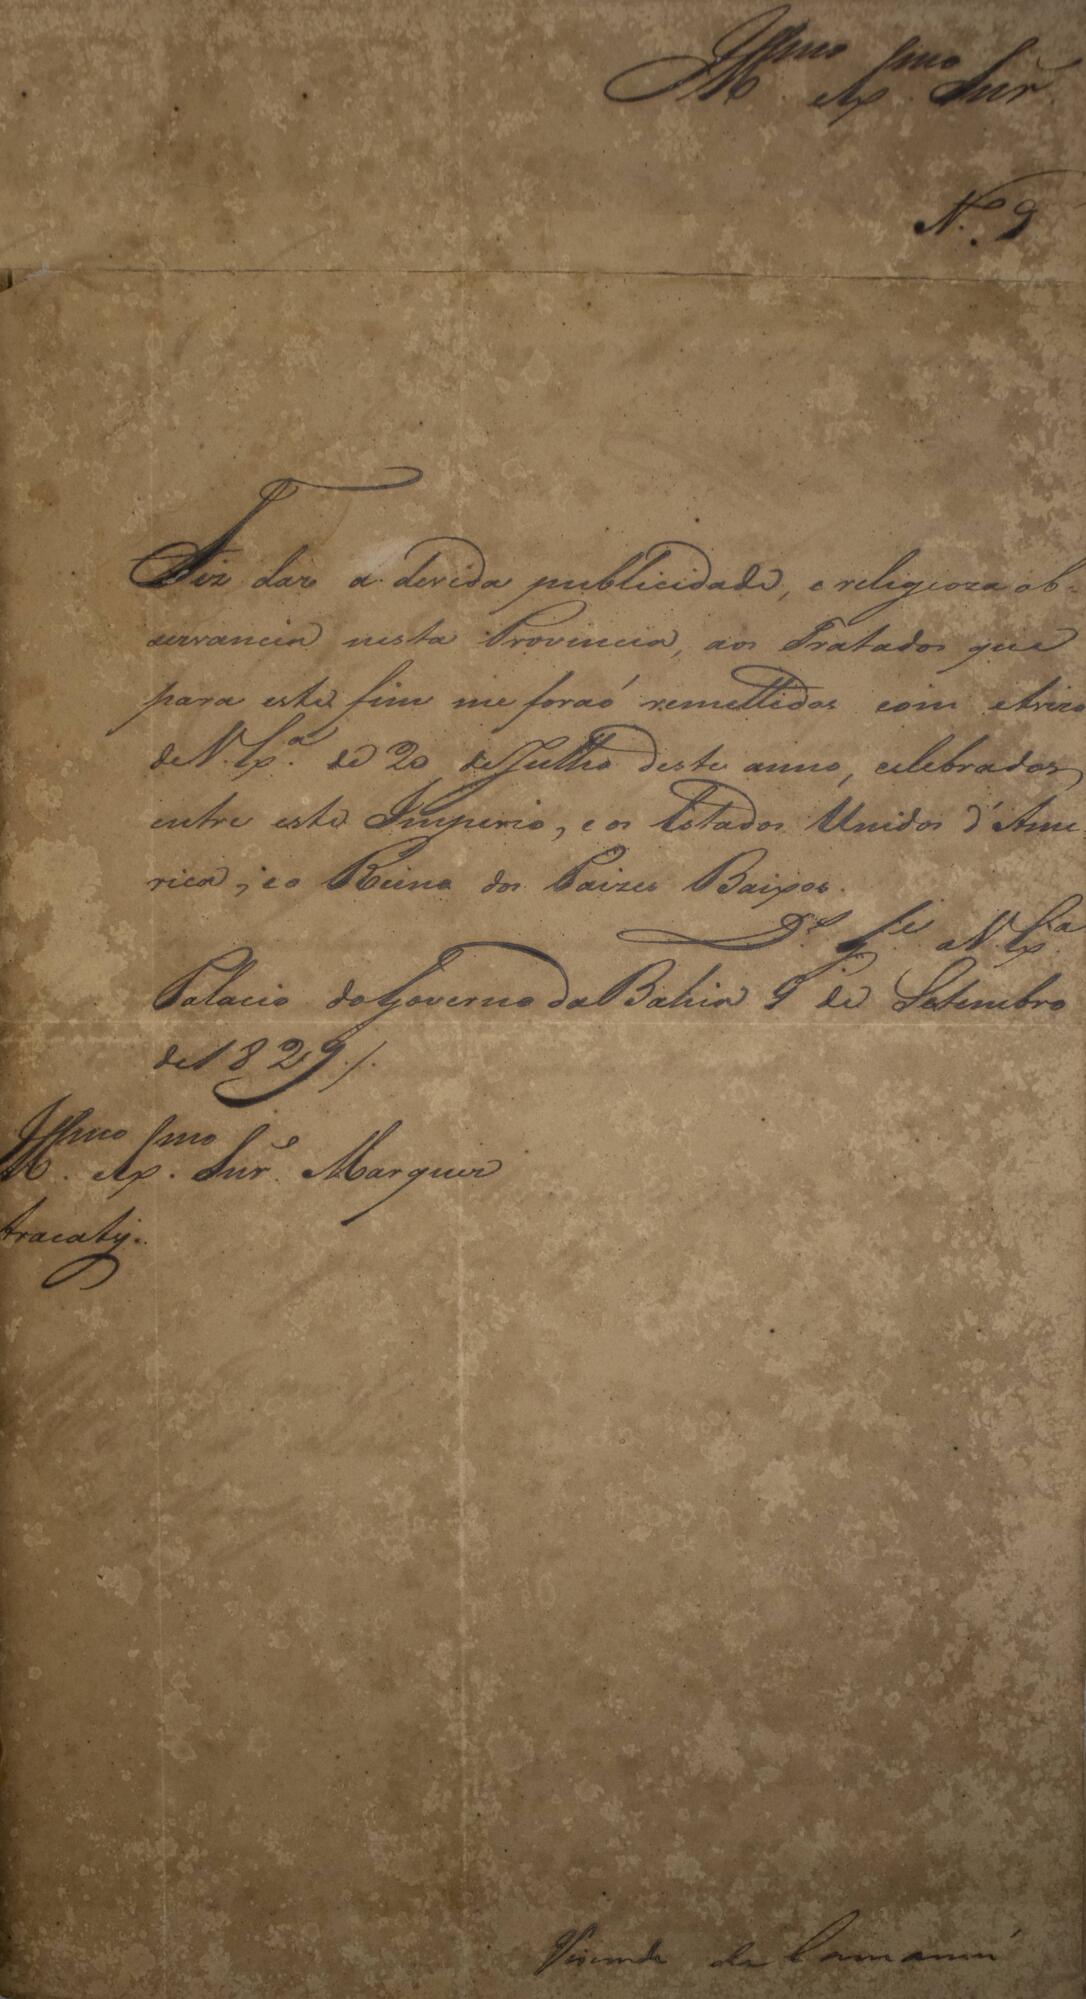 Illmo Exmo Snr
N.º 9
Fiz dar a devida publicidade, e religioza ob-
servancia nesta Provincia, aos Tratados que
para este fim me foraó remettidos com Avizo
de V. Ex.ª de 20 de Julho deste anno, celebrados
entre este Imperio, e os Estados Unidos d'Ame
rica, e o Reino dos Paizes Baixos.
D.s g.e a V. Ex.ª
Palacio do Governo da Bahia 9 de Setembro
de 1829 /.
Illmo Exmo Snr. Marquez
Aracaty.
Visconde de Camamú